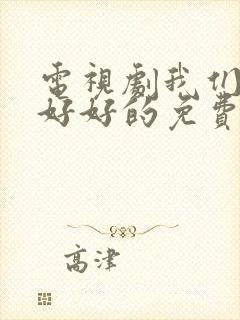 電視劇我们
好好的免費
高津